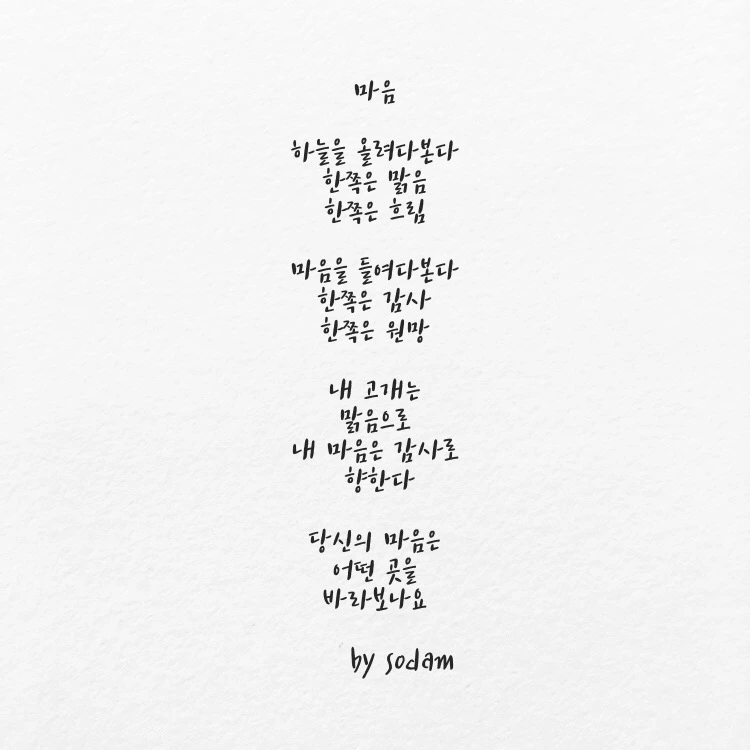 마음
하늘을 올려다본다
한쪽은 맑음
한쪽은 흐림
마음을 들여다본다
한쪽은 감사
한쪽은 원망
내 고개는
맑음으로
내 마음은 감사로
향한다
당신의 마음은
어떤 곳을
바라보나요
by sodam